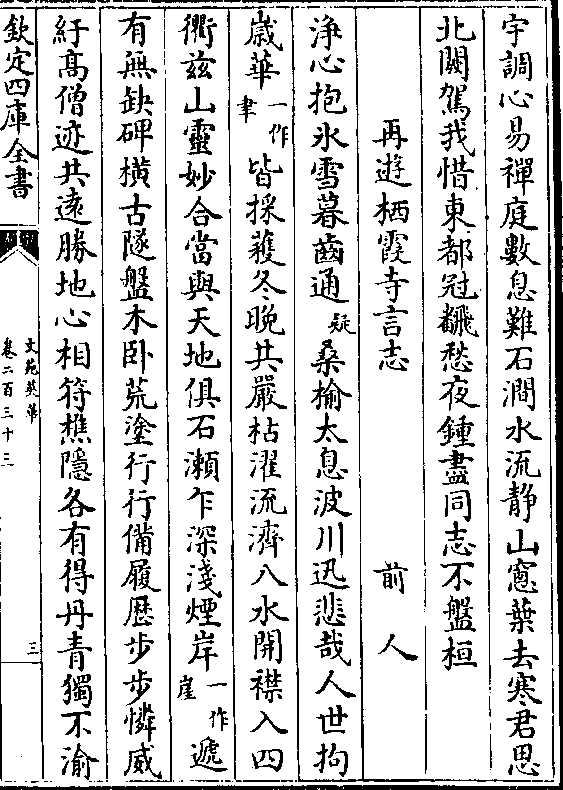 宇調心易禪庭數息難石澗水流静山窻葉去寒君思
北闕駕我惜東都冠飜愁夜鍾盡同志不盤桓
再遊栖霞寺言志 前人
浄心抱氷雪暮齒通疑桑榆太息波川迅悲哉人世拘
歳華一作聿皆採蒦冬晚共嚴枯濯流濟八水開襟入四
衢兹山靈妙合當與天地俱石瀬乍深淺煙岸一作崖遞
有無缺碑横古隧盤木卧荒塗行行備履歴步步憐威
紆高僧迹共遠勝地心相符樵隱各有得丹青獨不渝
欽定四庫全書
文苑英華
卷二百三十三
三